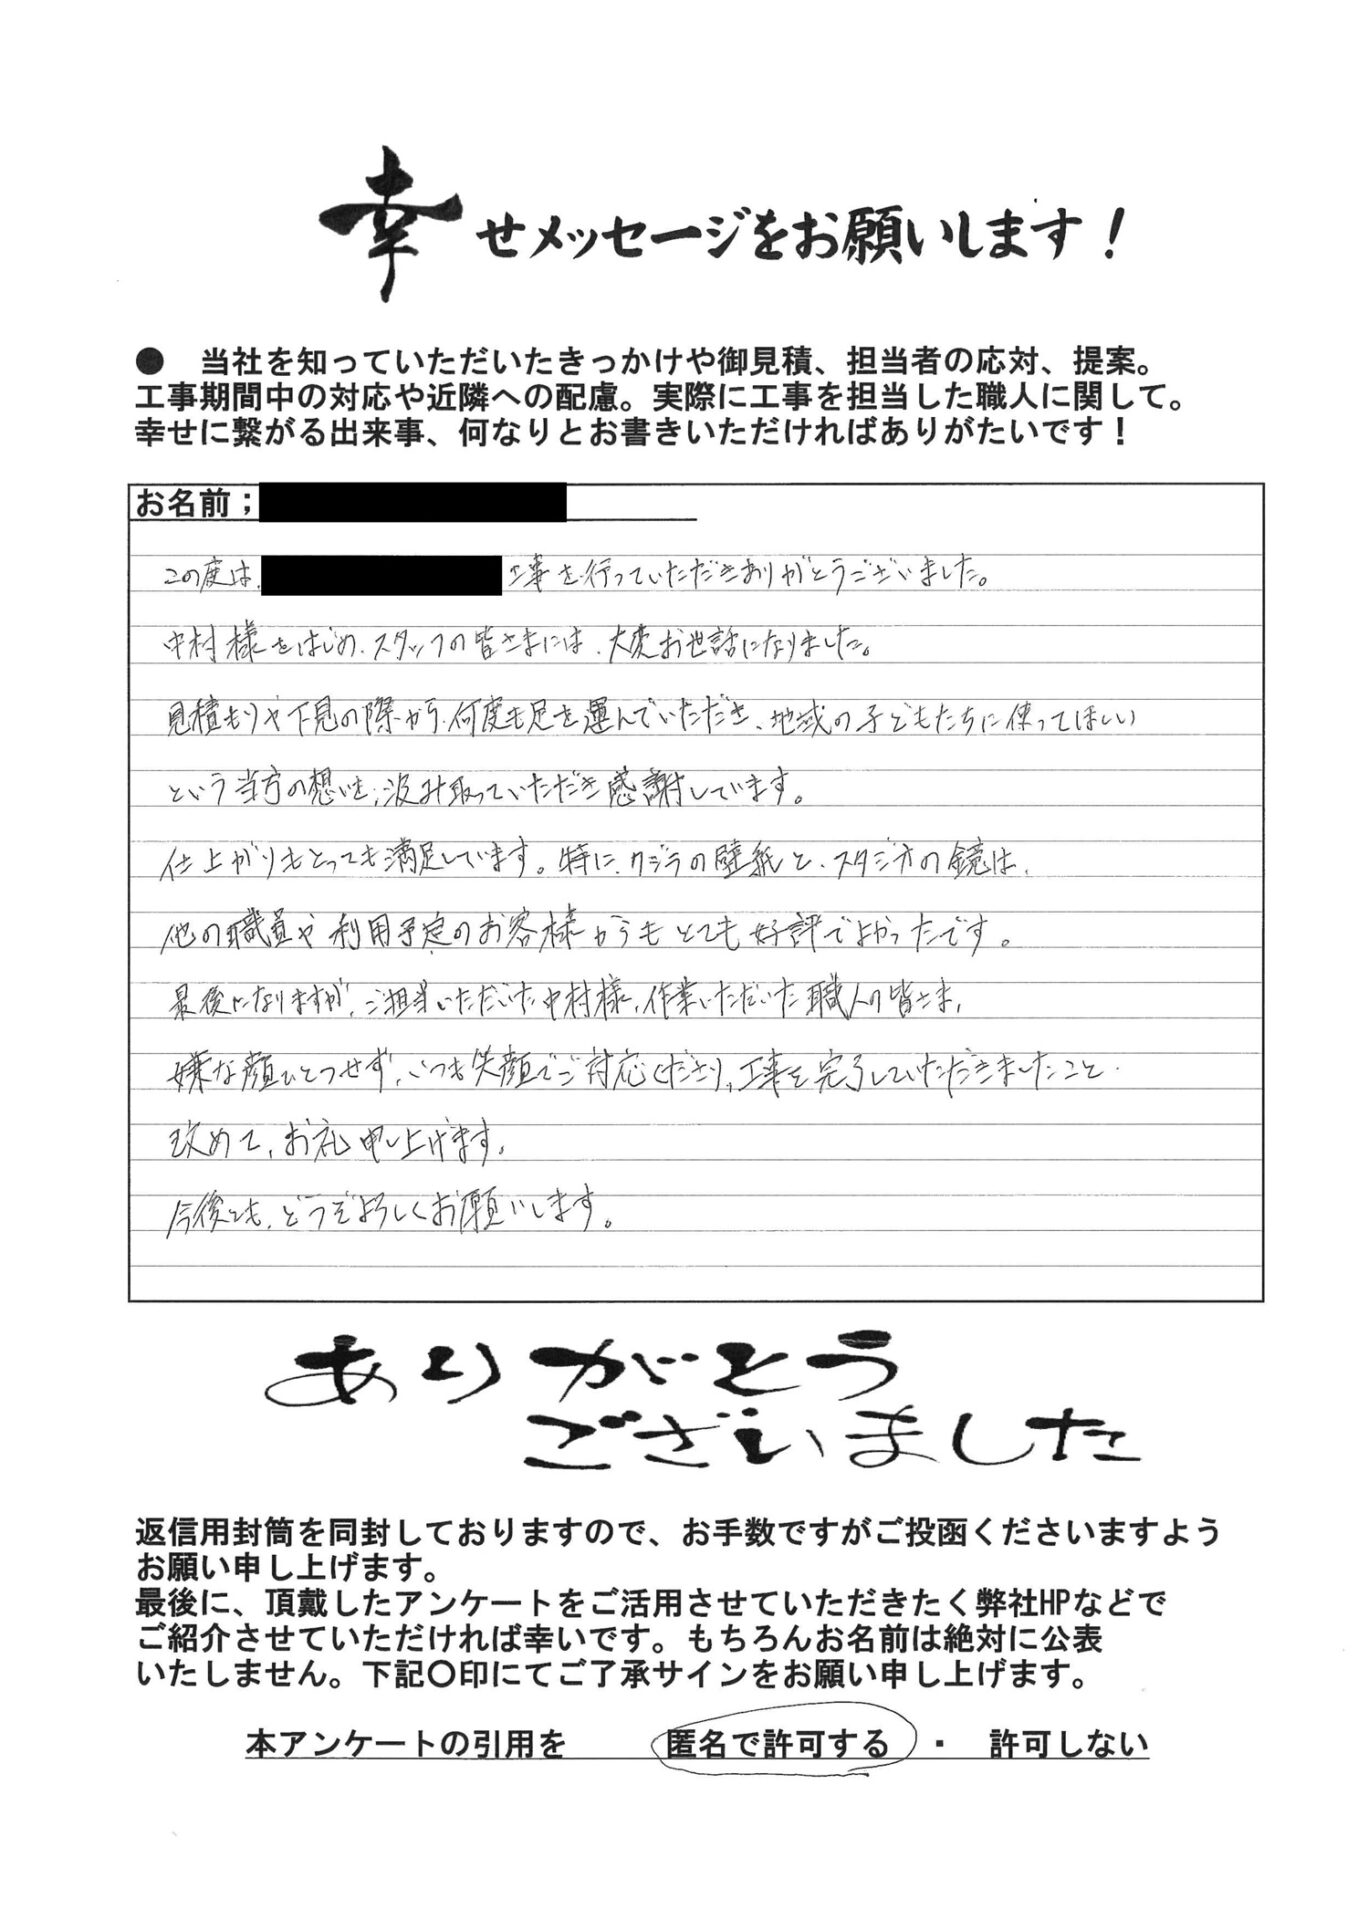 幸せメッセージをお願いします！
● 当社を知っていただいたきっかけや御見積、担当者の応対、提案。
工事期間中の対応や近隣への配慮。実際に工事を担当した職人に関して。
幸せに繋がる出来事、何なりとお書きいただければありがたいです！
お名前；
この度は、 工事を行っていただきありがとうございました。
中村様をはじめ、スタッフの皆さまには、大変お世話になりました。
見積もりや下見の際から、何度も足を運んでいただき、地域の子どもたちに使ってほしい
という当方の想いを、汲み取っていただき感謝しています。
仕上がりもとっても満足しています。特に、クジラの壁紙と、スタジオの鏡は、
他の職員や利用予定のお客様からもとても好評でよかったです。
最後になりますが、ご担当いただいた中村様、作業いただいた職人の皆さま、
嫌な顔ひとつせず、いつも笑顔でご対応くださり、工事を完了していただきましたこと、
改めて、お礼申し上げます。
今後とも、どうぞよろしくお願いします。
ありがとう
ございました
返信用封筒を同封しておりますので、お手数ですがご投函くださいますよう
お願い申し上げます。
最後に、頂戴したアンケートをご活用させていただきたく弊社HPなどで
ご紹介させていただければ幸いです。もちろんお名前は絶対に公表
いたしません。下記〇印にてご了承サインをお願い申し上げます。
本アンケートの引用を 匿名で許可する ・ 許可しない